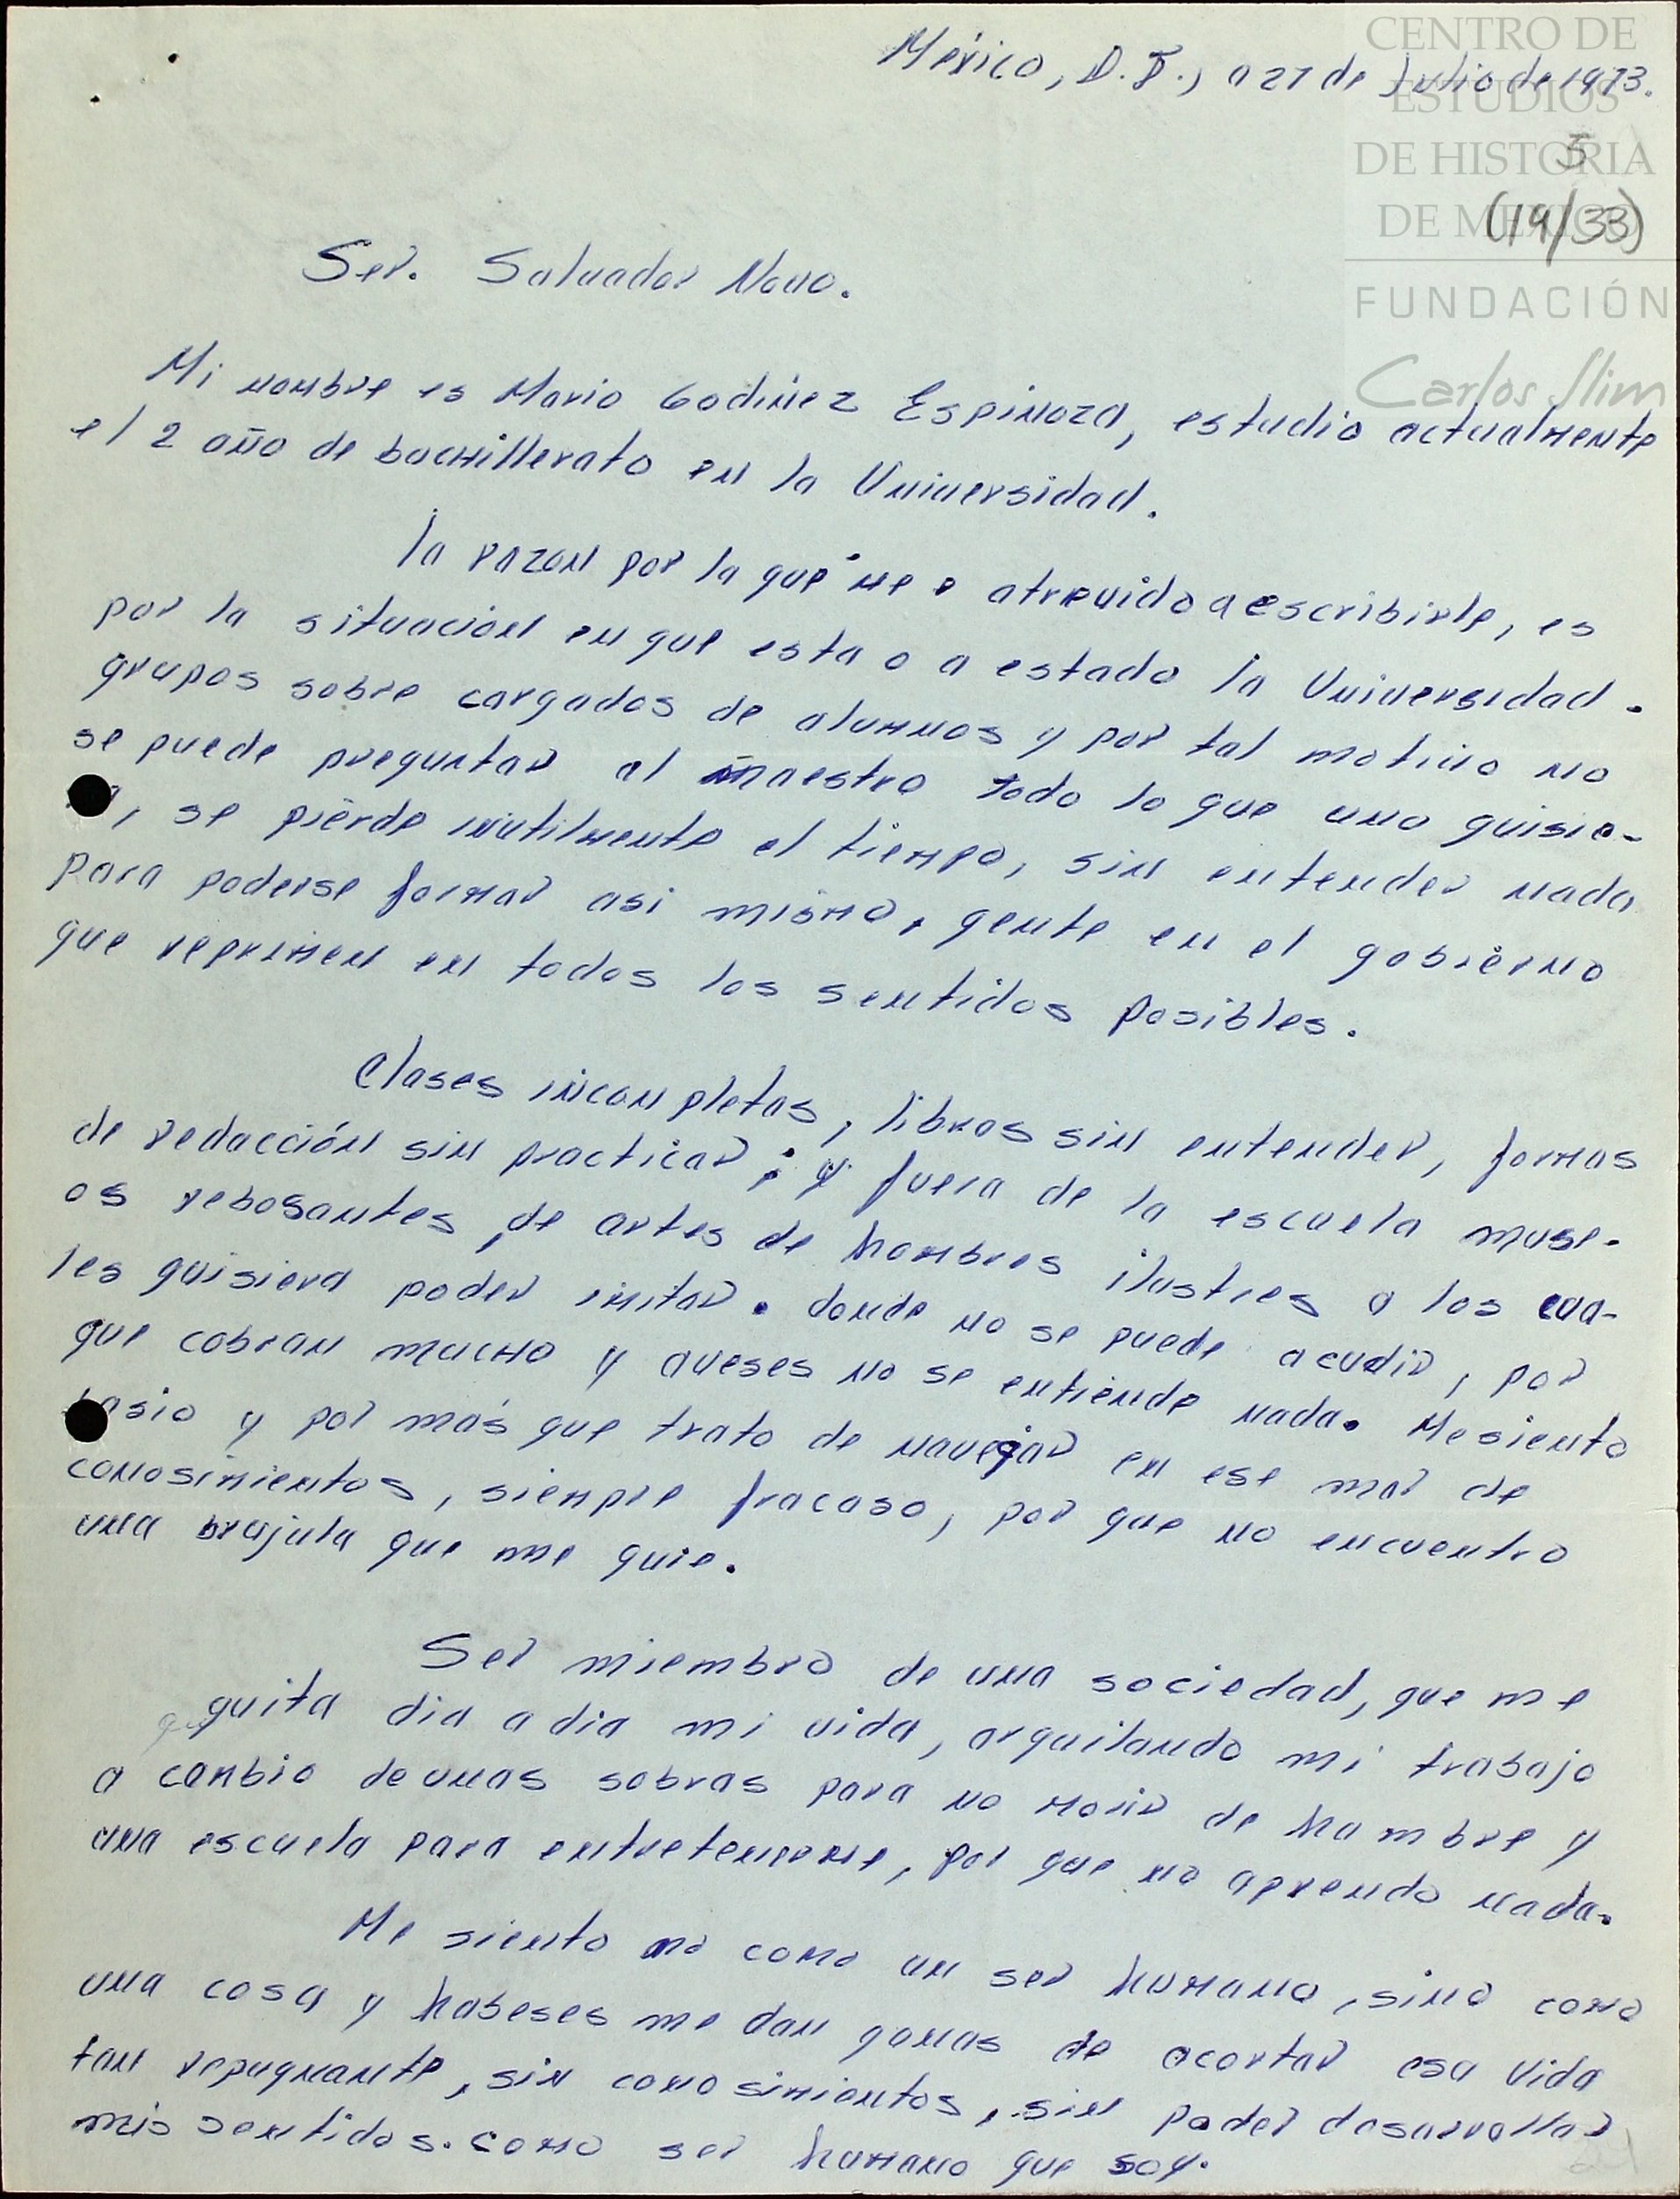 México, D.F., a 27 de Julio de 1973.
CENTRO DE
ESTUDIOS
DE HISTORIA
DE MEXICO
5
(19/33)
FUNDACIÓN
Carlos Slim
Ser. Salvador Novo.
Mi nombre es Mario Godinez Espinoza, estudio actualmente
el 2 año de bachillerato en la Universidad.
la razon por la que me e atrevido a escribirle, es
por la situación en que esta o a estado la Universidad.
grupos sobre cargados de alumnos y por tal motivo no
se puede preguntar al maestro todo lo que uno quisie-
a, se pierde inutilmente el tiempo, sin entender nada
para poderse formar asi mismo, gente en el gobierno
que reprimen en todos los sentidos posibles.
Clases incompletas, libros sin entender, formas
de redacción sin practicar; y fuera de la escuela muse-
os rebosantes, de artes de hombres ilustres a los cua-
les quisiera poder imitar. donde no se puede acudir, por
que cobran mucho y aveses no se entiende nada. Me siento
basio y por más que trato de navegar en ese mar de
conosimientos, siempre fracaso, por que no encuentro
una brujula que me guie.
Ser miembro de una sociedad, que me
quita dia a dia mi vida, arquilando mi trabajo
a cambio de unas sobras para no morir de hambre y
una escuela para entretenerme, por que no aprendo nada.
Me siento no como un ser humano, sino como
una cosa y habeses me dan ganas de acortar esa vida
tan repugnante, sin conosimientos, sin poder desarrollar
mis sentidos. como ser humano que soy.